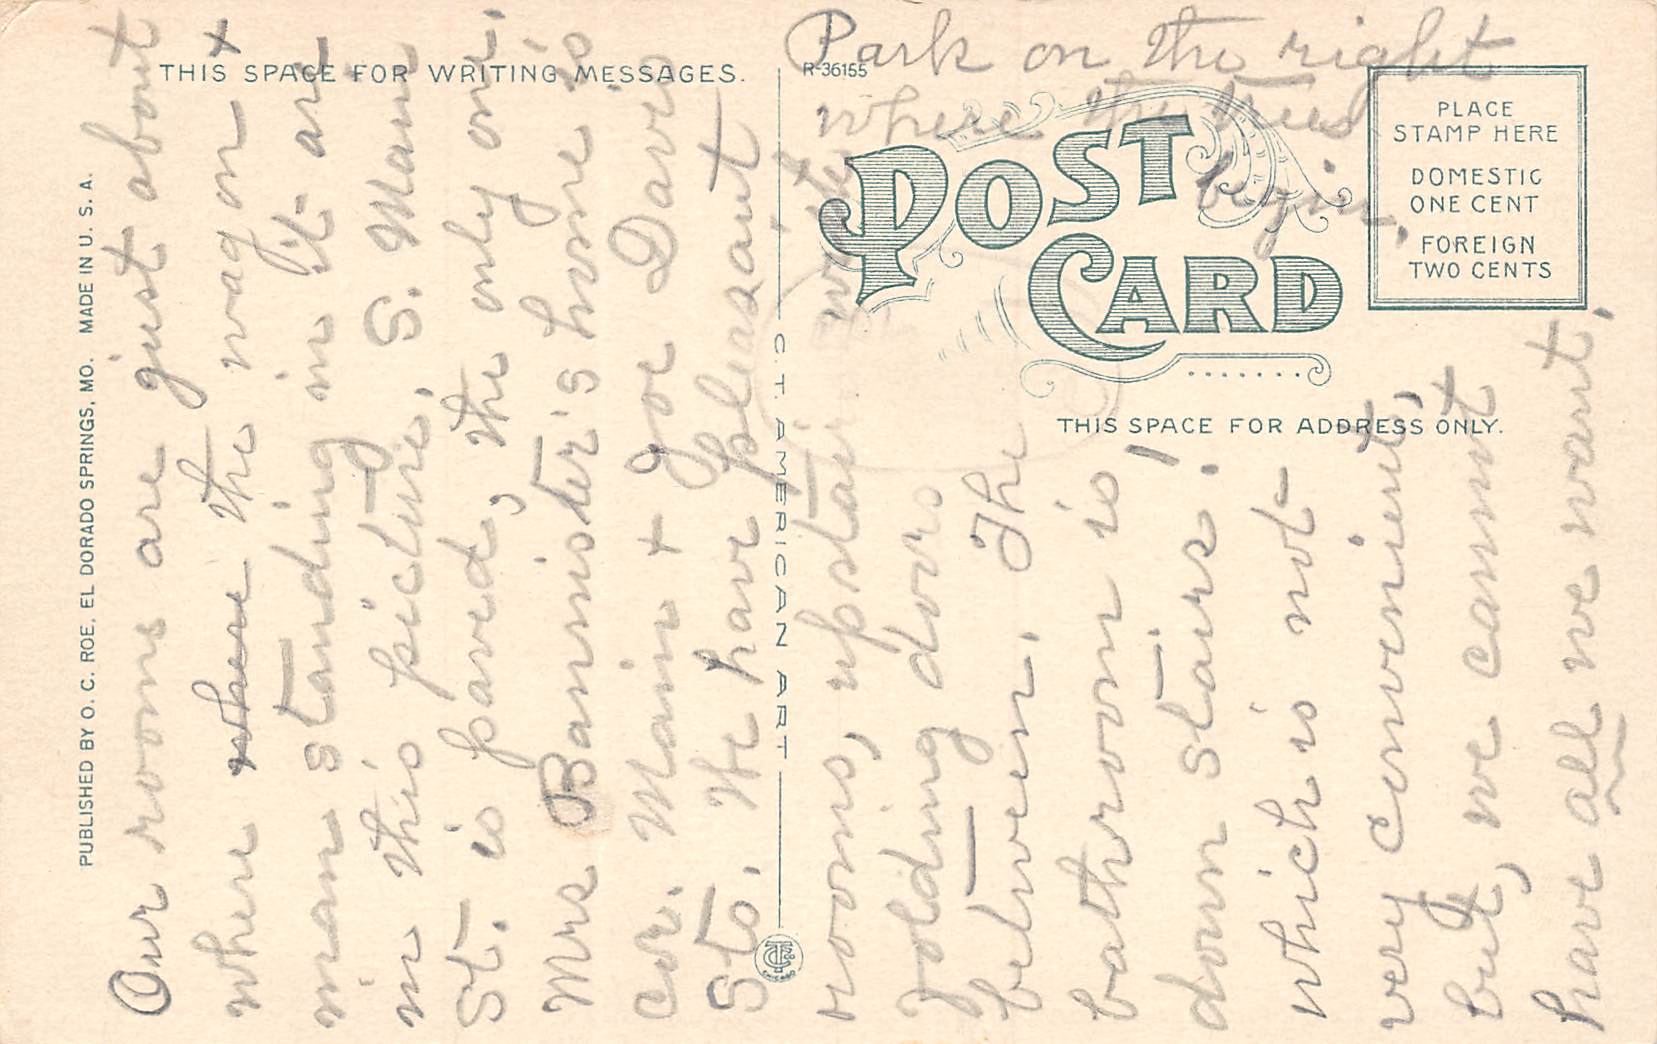 THIS SPACE FOR WRITING MESSAGES.
R-36155
POST
CARD
PLACE
STAMP HERE
DOMESTIC
ONE CENT
FOREIGN
TWO CENTS
THIS SPACE FOR ADDRESS ONLY.
PUBLISHED BY O. C. ROE, EL DORADO SPRINGS, MO. MADE IN U. S. A.
C. T. AMERICAN ART
CHICAGO
Our rooms are just about
where where the wagon +
man standing in it are
in this picture. S. Main
St. is paved, the only one.
Mrs Bannister's home is
cor. Main + Joe Davis
Sts. We have pleasant
rooms, upstairs
folding doors
between. The
bathroom is
down stairs!
which is not
very convenient,
but, we cannot
have all we want,
Park on the right
where the trees
begin.